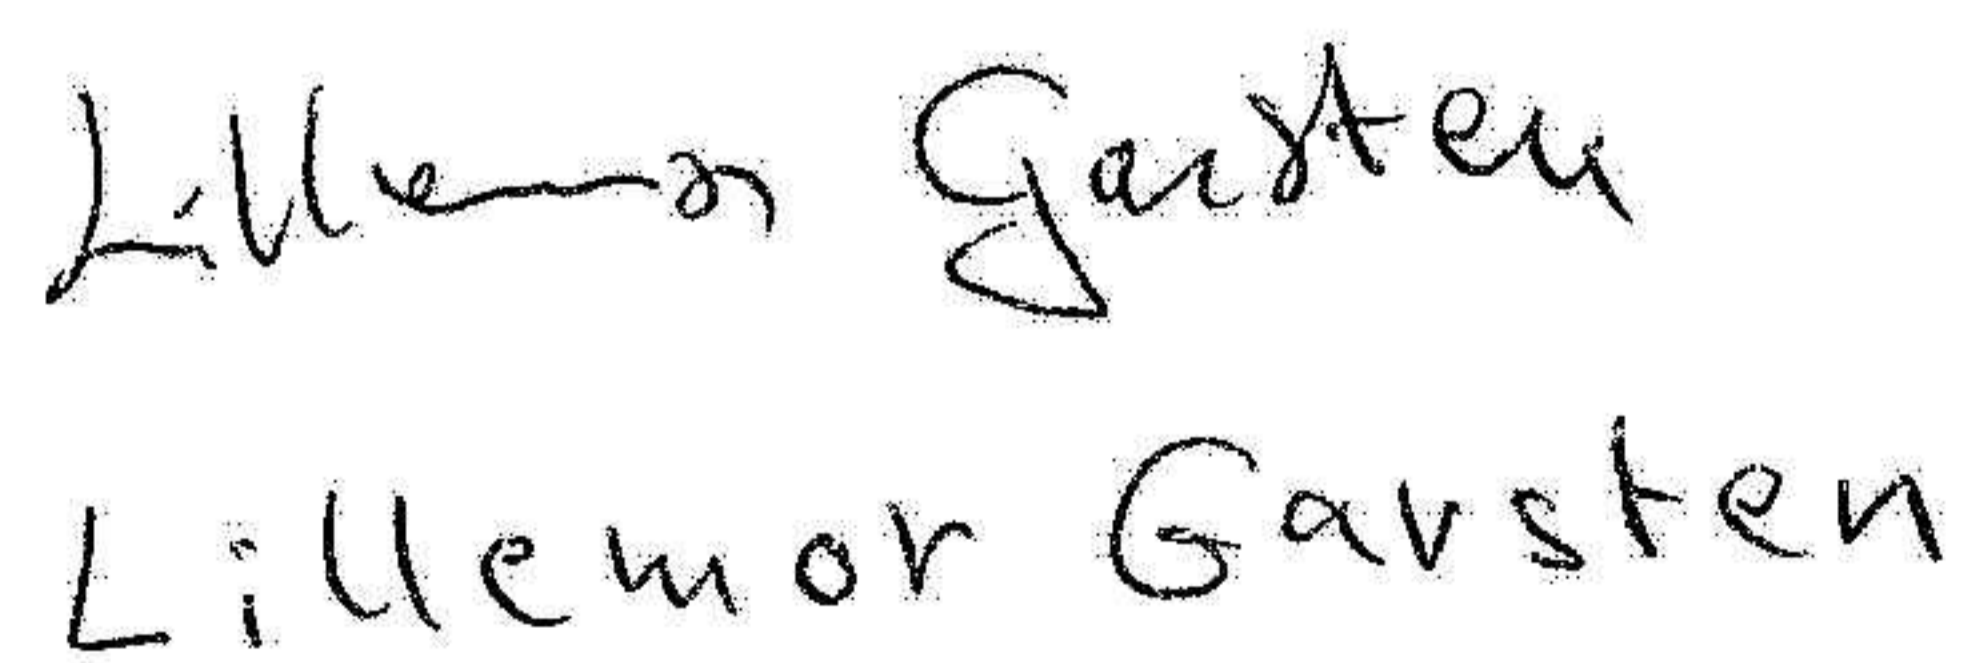 Lillemor Garsten
Lillemor Garsten